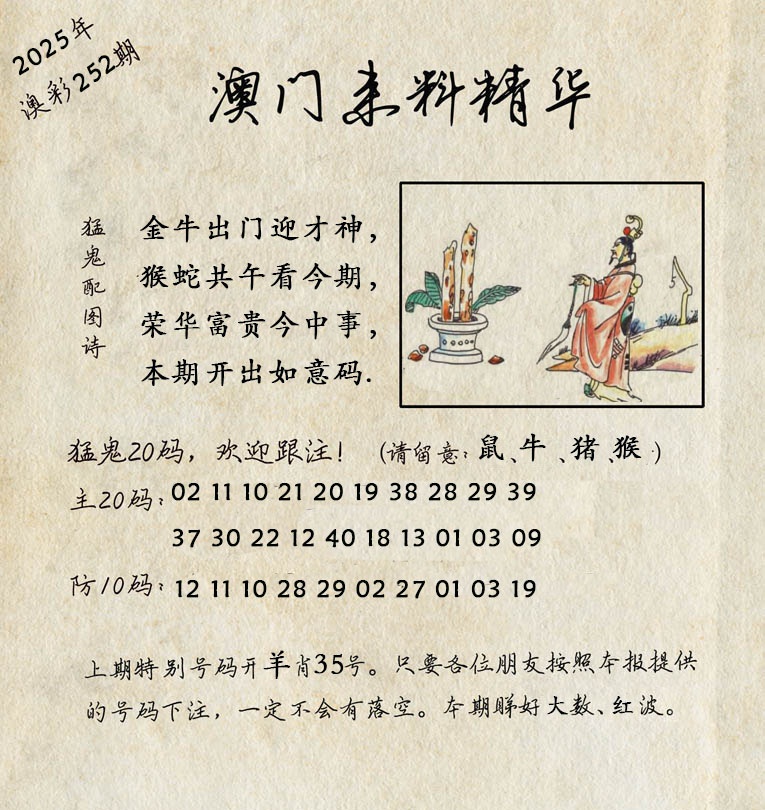 2025年
澳彩252期
澳门来料精华
猛鬼配图诗
金牛出门迎才神，
猴蛇共午看今期，
荣华富贵今中事，
本期开出如意码.
猛鬼20码，欢迎跟注！（请留意：鼠、牛、猪、猴）
主20码：02 11 10 21 20 19 38 28 29 39
37 30 22 12 40 18 13 01 03 09
防10码：12 11 10 28 29 02 27 01 03 19
上期特别号码开羊肖35号。只要各位朋友按照本报提供
的号码下注，一定不会有落空。本期睇好大数、红波。